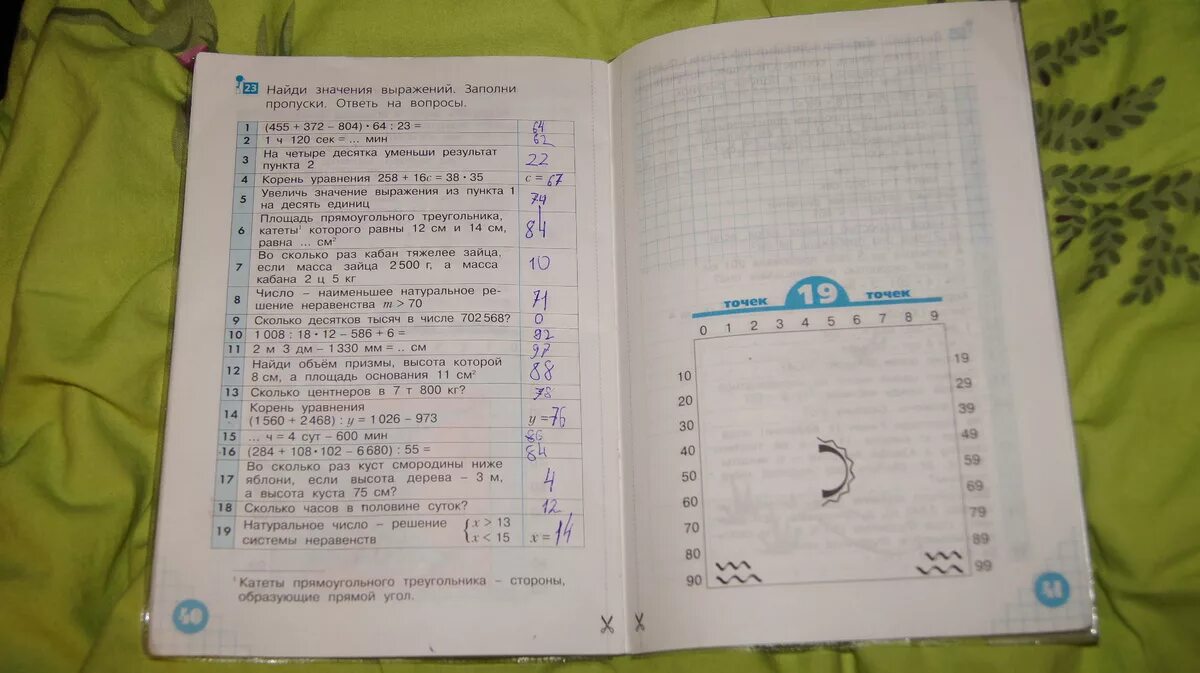 23 Найди значения выражений. Заполни
пропуски. Ответь на вопросы.
1 (455 + 372 – 804) · 64 : 23 = 64
2 1 ч 120 сек = ... мин 62
3 На четыре десятка уменьши результат
пункта 2 22
4 Корень уравнения 258 + 16с = 38 · 35 с = 67
5 Увеличь значение выражения из пункта 1
на десять единиц 74
6 Площадь прямоугольного треугольника,
катеты¹ которого равны 12 см и 14 см,
равна ... см² 84
7 Во сколько раз кабан тяжелее зайца,
если масса зайца 2 500 г, а масса
кабана 2 ц 5 кг 10
8 Число – наименьшее натуральное ре-
шение неравенства m > 70 71
9 Сколько десятков тысяч в числе 702 568? 0
10 1 008 : 18 · 12 – 586 + 6 = 92
11 2 м 3 дм – 1 330 мм = .. см 97
12 Найди объём призмы, высота которой
8 см, а площадь основания 11 см² 88
13 Сколько центнеров в 7 т 800 кг? 78
14 Корень уравнения
(1 560 + 2 468) : y = 1 026 – 973 y = 76
15 ... ч = 4 сут – 600 мин 86
16 (284 + 108 · 102 – 6 680) : 55 = 84
17 Во сколько раз куст смородины ниже
яблони, если высота дерева – 3 м,
а высота куста 75 см? 4
18 Сколько часов в половине суток? 12
19 Натуральное число – решение { x > 13
системы неравенств x < 15 x = 14
¹ Катеты прямоугольного треугольника – стороны,
образующие прямой угол.
40
точек 19 точек
0 1 2 3 4 5 6 7 8 9
19
10
29
20
39
30
49
40
59
50
69
60
79
70
89
80
99
90
41